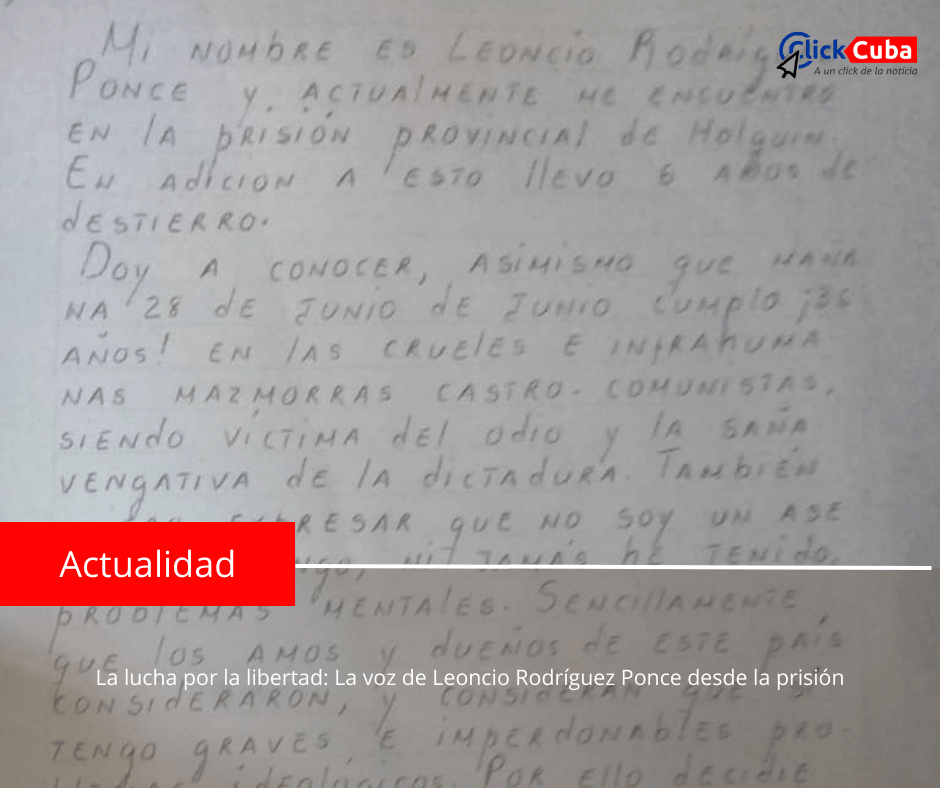 Mi NOMBRE ES LEONCIO RODRIG
ClickCuba
A un click de la noticia
PONCE Y ACTUALMENTE ME ENCUENTRO
EN LA PRISIÓN PROVINCIAL de HOLGUIN.
EN AdICION A ESTO llEVO 6 AÑOS dE
dESTIERRO.
Doy A CONOCER, ASIMISMO QUE MAÑA
NA 28 dE JUNIO dE JUNIO CUMPLO ¡36
AÑOS! EN LAS CRUELES E INFRAHUMA
NAS MAZMORRAS CASTRO-COMUNISTAS,
SIENdO VÍCTIMA dEl OdIO y lA SAÑA
VENGATIVA dE LA dICTAdURA. TAMBIÉN
RESAR QUE NO SOY UN ASE
Actualidad
NI JAMÁS hE TENIdO
PROBLEMAS MENTALES. SENCILLAMENTE
QUE LOS AMOS y dUEÑOS dE ESTE PAÍS
La lucha por la libertad: La voz de Leoncio Rodríguez Ponce desde la prisión
CONSIdERARON, y CONSIdERAN QUE
TENGO GRAVES E IMPERdONABLES PRO-
idEOLÓGICOS. POR Ello dECIdIE